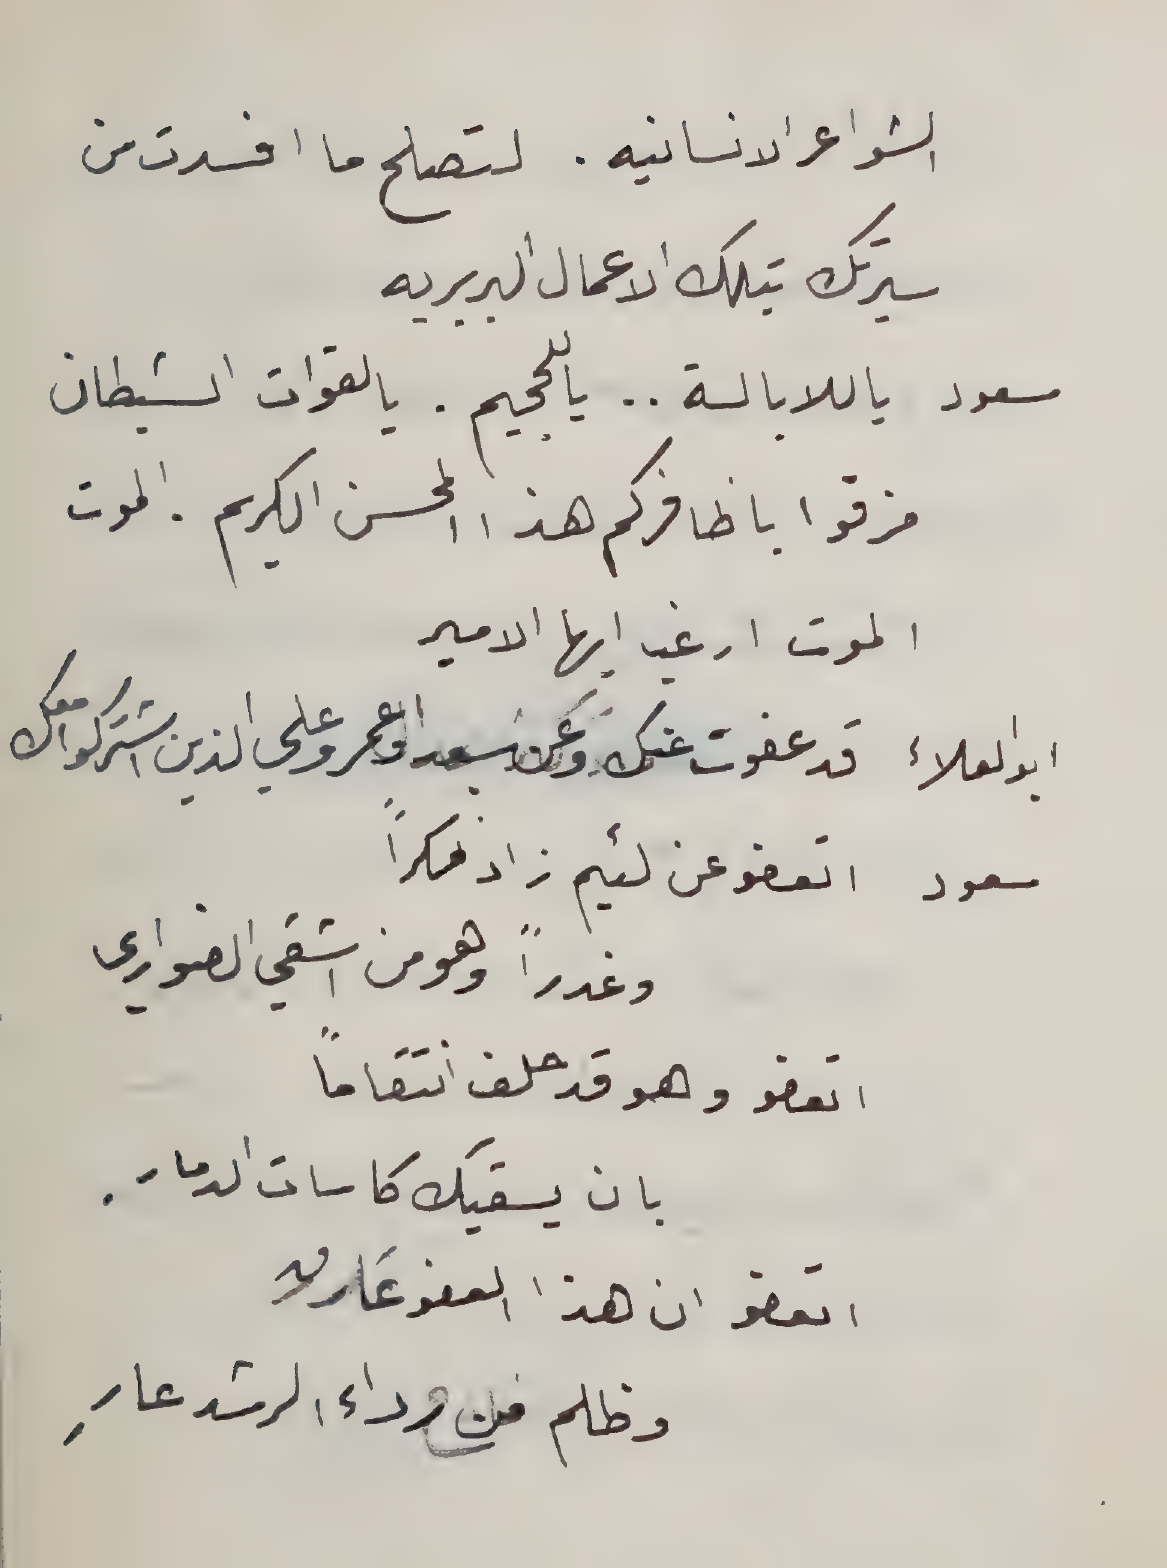 الشواعر الانسانيه . لتصلح ما افسدت من
سيرتك بتلك الاعمال البربريه
مسعود ياللابالسة .. ياللجحيم . يالقوات الشيطان
مزقوا باظافركم هذا المحسن الكريم . الموت
الموت ارغب ايها الامير
ابوالعلاء قد عفوت عنك وعن سعد وعمر وعلي الذين اشتركوا معك
مسعود اتعفو عن لئيم زاد مكراً
وغدراً وهو من اشقي الضواري
اتعفو وهو قد حلف انتقاماً
بان يسقيك كاسات الدمار .
اتعفو ان هذا العفو عار
وظلم من رداء الرشد عار